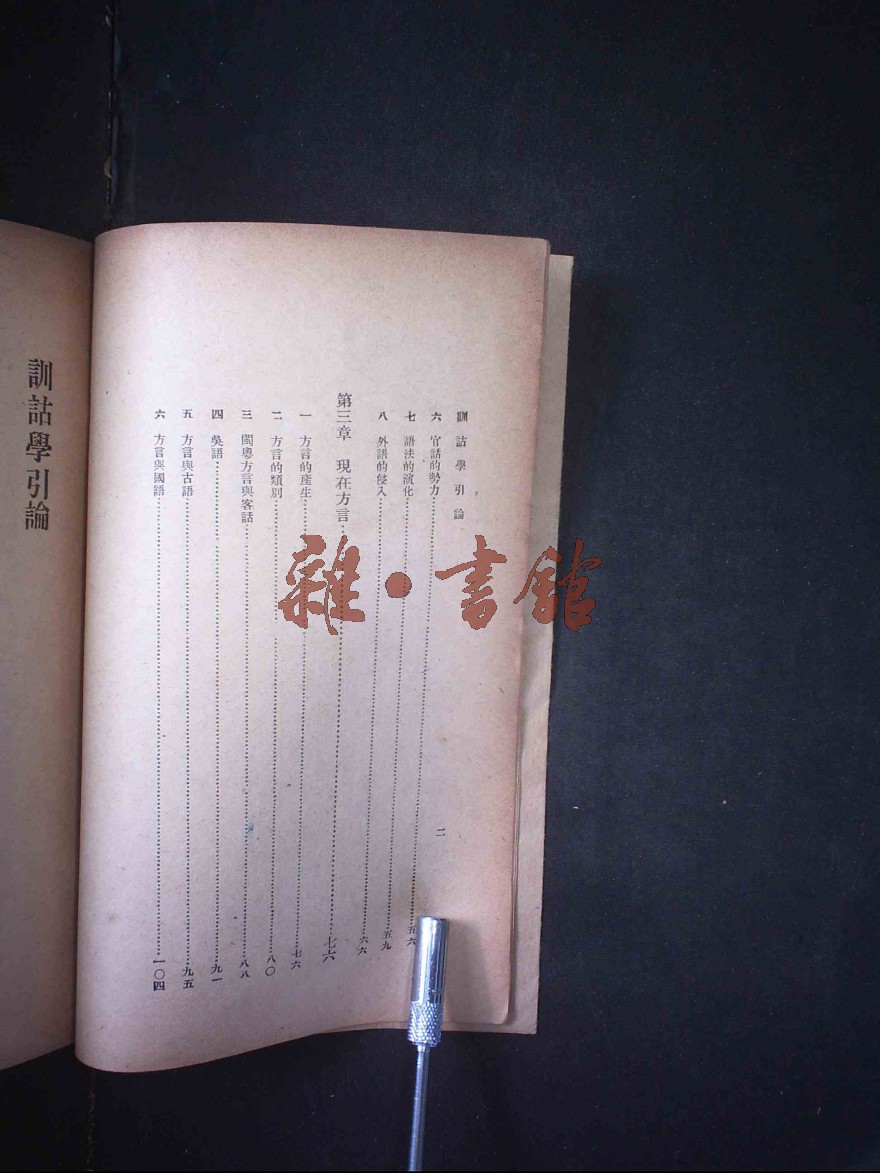 訓詁學引論
六 官話的勢力……五六
七 語法的演化……五九
八 外語的侵入……六六
第三章 現在方言……七六
一 方言的產生……七六
二 方言的類別……八〇
三 閩粵方言與客話……八八
四 吳語……九一
五 方言與古語……九五
六 方言與國語……一〇四
二
訓詁學引論
雜·書館